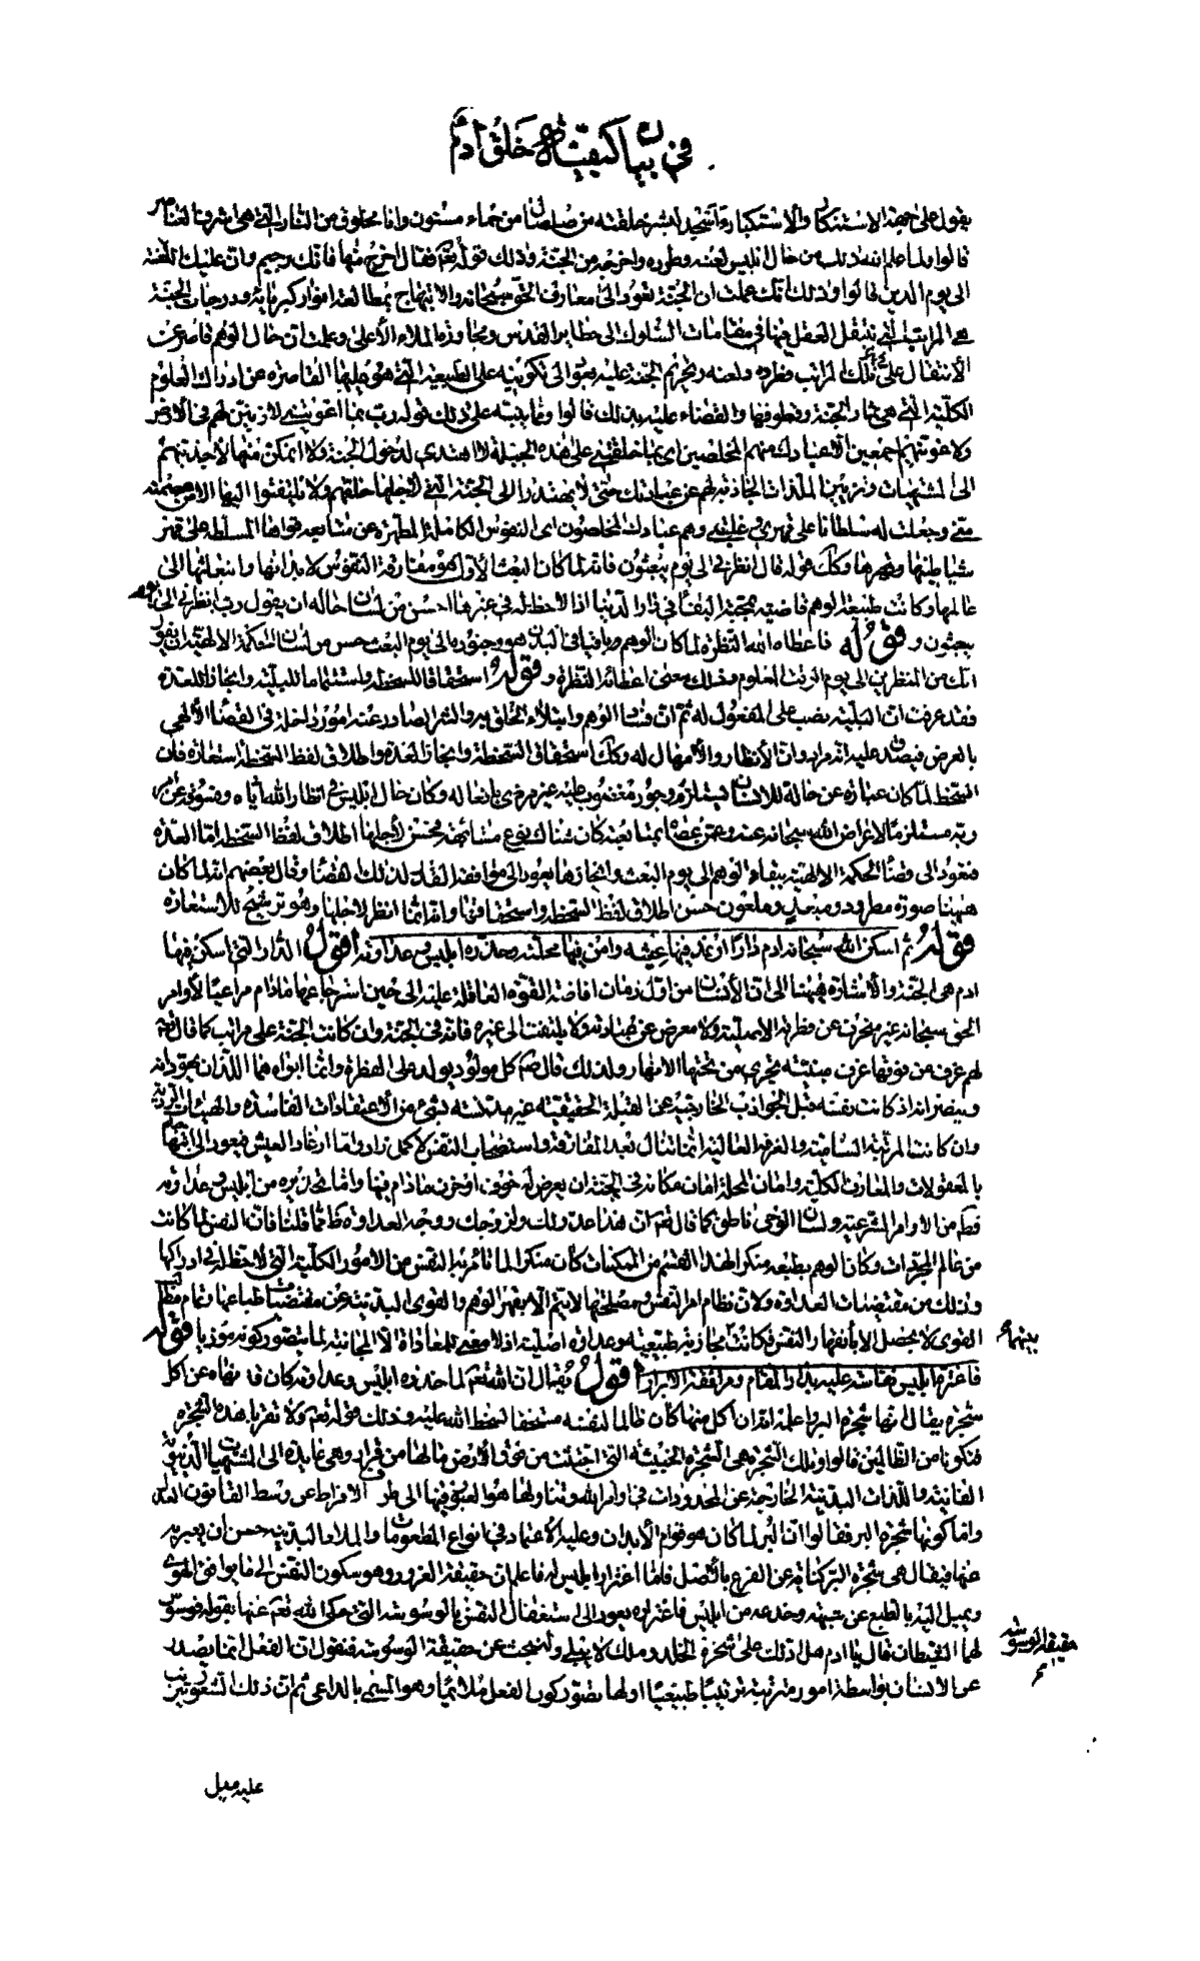 في بيان كيفية خلق آدم
يقول على جهة الاستنكار والاستكبار ءاسجد لبشر خلقته من صلصال من حماء مسنون وانا مخلوق من النار التي هي اشرف العناصر
قالوا ولما علم الله ذلك من حال ابليس لعنه وطرده واخرجه من الجنة وذلك قوله تعم فقال اخرج منها فانك رجيم وان عليك اللعنة
الى يوم الدين قالوا وذلك انك علمت ان الجنة تعود الى معارف الحق سبحانه والابتهاج بمطالعة انوار كبريائه ودرجات الجنة
هي المراتب التي ينتقل العقل فيها في مقامات السلوك الى حظاير القدس ومجاورة الملاء الأعلى وعلمت ان حال الوهم قاصر عن
الأنتقال على تلك المراتب فطرده ولعنه وتحريم الجنة عليه يعود الى تكوينه على الطبيعة التي هو عليها القاصرة عن ادراك العلوم
الكلية التي هي ثمار الجنة وقطوفها والقضاء عليه بذلك قالوا ومما ينبه على ذلك قوله رب بما اغويتني لازينن لهم في الارض
ولاغوينهم اجمعين الا عبادك منهم المخلصين اى بما خلقتني على هذه الجبلة لا اهتدي لدخول الجنة ولا اتمكن منها لأجذبنهم
الى المشتهيات وتزيين الملذات الجاذبة لهم عن عبادتك حتى لا يهتدوا الى الجنة التي لاجلها خلقتهم ولا يلتفتوا اليها الا من عصمته
مني وجعلت له سلطانا على قهري وغلبتي وهم عبادك المخلصون اى النفوس الكاملة المطهرة عن متابعة قواها المسلطة على قهر
شياطينها وقهرها وكك قوله قال انظرني الى يوم يبعثون فانه لما كان البعث الأول هو مفارقة النفوس لابدانها وانبعاثها الى
عالمها وكانت طبيعة الوهم قاضية بمحبة البقاء في دار الدنيا اذ لا حظ له في غيرها احسن من لسان حاله ان يقول رب انظرني الى يوم
يبعثون وقوله فاعطاه الله النظرة لما كان الوهم باقيا في البدن هو وجنوده الى يوم البعث حسن من لسان الحكمة الالهية ان يقول
انك من المنظرين الى يوم الوقت المعلوم وذلك معنى اعطائه النظرة وقوله استحقاقا للسخطة واستتماما للبلية وانجازا للعدة
فقد عرفت ان البلية نصب على المفعول له ثم ان فتنة الوهم وابتلاء الخلق به والشر الصادر عنه امور داخلة في القضاء الألهي
بالعرض فيصدق عليه انه مراد وان الأنظار والأمهال له وكك استحقاق السخطة وانجاز العدة واطلاق لفظ السخطة استعارة فان
السخط لما كان عبارة عن حالة للانسان يستلزم وجود مغضوب عليه غير مرضي بافعاله وكان حال ابليس في انظار الله اياه وفسوقه عن امر
ربه مستلزما لاعراض الله سبحانه عنه وعمن عصاه بمتابعته كان هناك نوع مشابهة يحسن لأجلها اطلاق لفظ السخطة اما العدة
فتعود الى قضاء الحكمة الالهية ببقاء الوهم الى يوم البعث وانجازها يعود الى موافقة القدر لذلك القضاء وقال بعضهم انه لما كان
هيهنا صورة مطرود ومبعد وملعون حسن اطلاق لفظ السخطة واستحقاقها وانه انما انظر لاجلها وهو ترشيح للاستعارة
قوله ثم اسكن الله سبحانه ادم دارا ارغد فيها عيشه وامن فيها محلته وحذره ابليس وعداوته اقول الدار التي اسكن فيها
ادم هى الجنة والأشارة هيهنا الى ان الأنسان من اول زمان افاضة القوة العاقلة عليه الى حين استرجاعها مادام مراعيا لأوامر
الحق سبحانه غير منحرف عن فطرته الاصلية ولا معرض عن عبادته ولا يلتفت الى غيره فانه في الجنة وان كانت الجنة على مراتب كما قال تعم
لهم غرف من فوقها غرف مبنية تجري من تحتها الانهار ولذلك قال صم كل مولود يولد على الفطرة وانما ابواه هما اللذان يهودانه
وينصرانه اذ كانت نفسه قبل الجواذب الخارجية عن القبلة الحقيقية غير مدنسة بشيء من الأعتقادات الفاسدة والهيئات الردية
وان كانت المرتبة السامية والغرفة العالية انما تنال بعد المفارقة واستصحاب النفس لاكمل زاد واما ارغاد العيش فيعود الى ابتهاجها
بالمعقولات والمعارف الكلية وامان المحلة امان مكانه في الجنة ان يعرض له خوف او حزن مادام فيها واما تحذيره من ابليس وعداوته
فظ من الاوامر الشرعية ولسان الوحى ناطق كما قال تعم ان هذا عدو لك ولزوجك ووجه العداوة ظ مما قلنا فان النفس لما كانت
من عالم المجردات وكان الوهم بطبعه منكرا لهذا القسم من الممكنات كان منكرا لما تامر به النفس من الامور الكلية التي لا حظ له في ادراكها
وذلك من مقتضيات العداوة ولان نظام امر النفس ومصلحتها لا يتم الا بقهر الوهم والقوى البدنية عن مقتضيات طباعها وتمام مطلوب
القوى لا يحصل الا بانقهار النفس فكانت بينهما مجاذبة طبيعية وعداوة اصلية اذ لا معنى للمعاداة الا المجانبة لما يتصور كونه موذيا قوله
فاغتره ابليس نفاسة عليه بدار المقام ومرافقة الابرار اقول يقال ان الله تعم لما حذره ابليس وعداوته كان قد نهاه عن اكل
شجرة يقال انها شجرة البر واعلمه انه ان اكل منها كان ظالما لنفسه مستحقا لسخط الله عليه وذلك قوله تعم ولا تقربا هذه الشجرة
فتكونا من الظالمين قالوا وتلك الشجرة هى الشجرة الخبيثة التي اجتثت من فوق الأرض مالها من قرار وهى عايدة الى المشتهيات الدنيوية
الفانية واللذات البدنية الخارجة عن المحدودات في اوامر الله وتناولها هو العبور فيها الى طرف الافراط عن وسط القانون العدلى
واما كونها شجرة البر فقالوا ان البر لما كان هو قوام الأبدان وعليه الأعتماد في انواع المطعومات والملاذ البدنية حسن ان يعبر به
عنها فيقال هى شجرة البر كناية عن الفرع بالأصل فاما اغترار ابليس له فاعلم ان حقيقة الغرور هو سكون النفس الى ما يوافق الهوى
ويميل اليه بالطبع عن شبهة وخدعة من ابليس فاغتراره يعود الى استغفال النفس بالوسوسة التي حكى الله تعم عنها بقوله فوسوس
لهما الشيطان قال يا ادم هل ادلك على شجرة الخلد وملك لا يبلى ولنبحث عن حقيقة الوسوسة فنقول ان الفعل انما يصدر
عن الانسان بواسطة امور مترتبة ترتيبا طبيعيا اولها تصور كون الفعل ملائما وهو المسمى بالداعي ثم ان ذلك الشعور يترتب
بينهما
حقيقة الوسوسة
عليه ميل